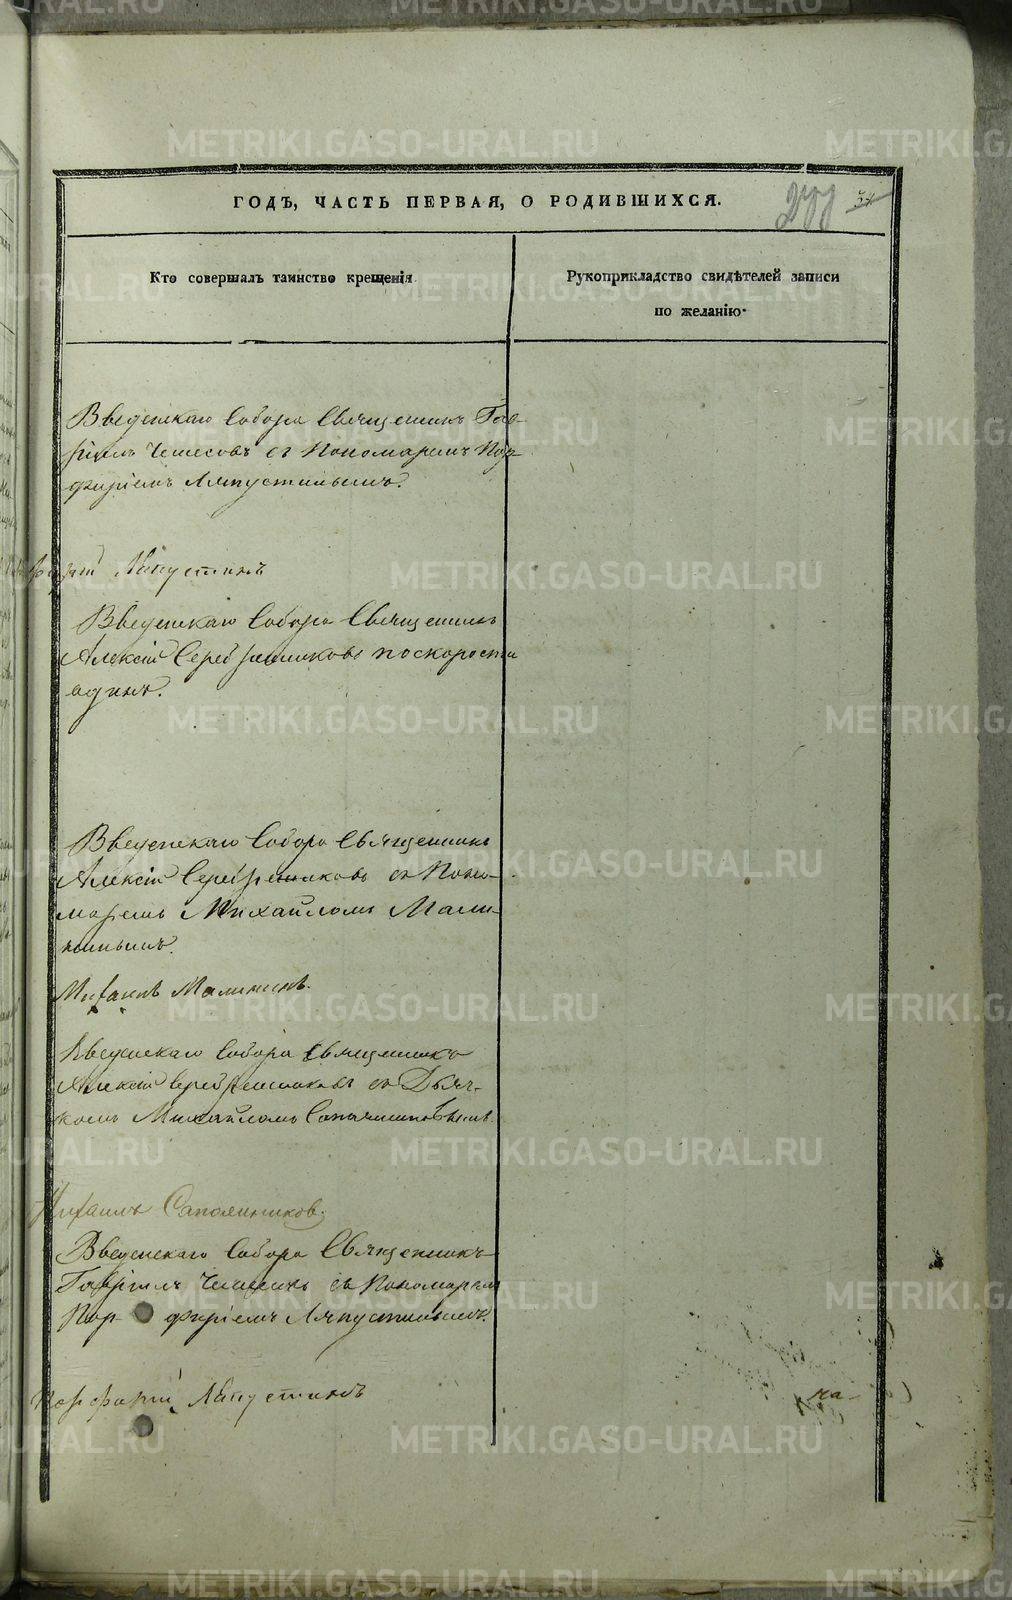 ГОДЪ, ЧАСТЬ ПЕРВАЯ, О РОДИВШИХСЯ.
277 34
Кто совершалъ таинство крещенія
Рукоприкладство свидѣтелей записи
по желанію.
Введенскаго Собора Священникъ Гав-
ріилъ Чемесовъ съ Пономаремъ Пор-
фиріемъ Ляпустинымъ.
Ляпустинъ
Введенскаго Собора Священникъ
Алексій Серебренниковъ поскорости
одинъ.
Введенскаго Собора Священникъ
Алексій Серебренниковъ съ Поно-
маремъ Михайломъ Мали-
нинымъ.
Михаилъ Малининъ.
Введенскаго Собора Священникъ
Алексій Серебренниковъ съ Дьяч-
комъ Михайломъ Сапожниковымъ.
Михаилъ Сапожников.
Введенскаго Собора Священникъ
Гавріилъ съ Пономаремъ
Пор- фиріемъ Ляпустинымъ.
Порфирій Ляпустинъ
на
METRIKI.GASO-URAL.RU